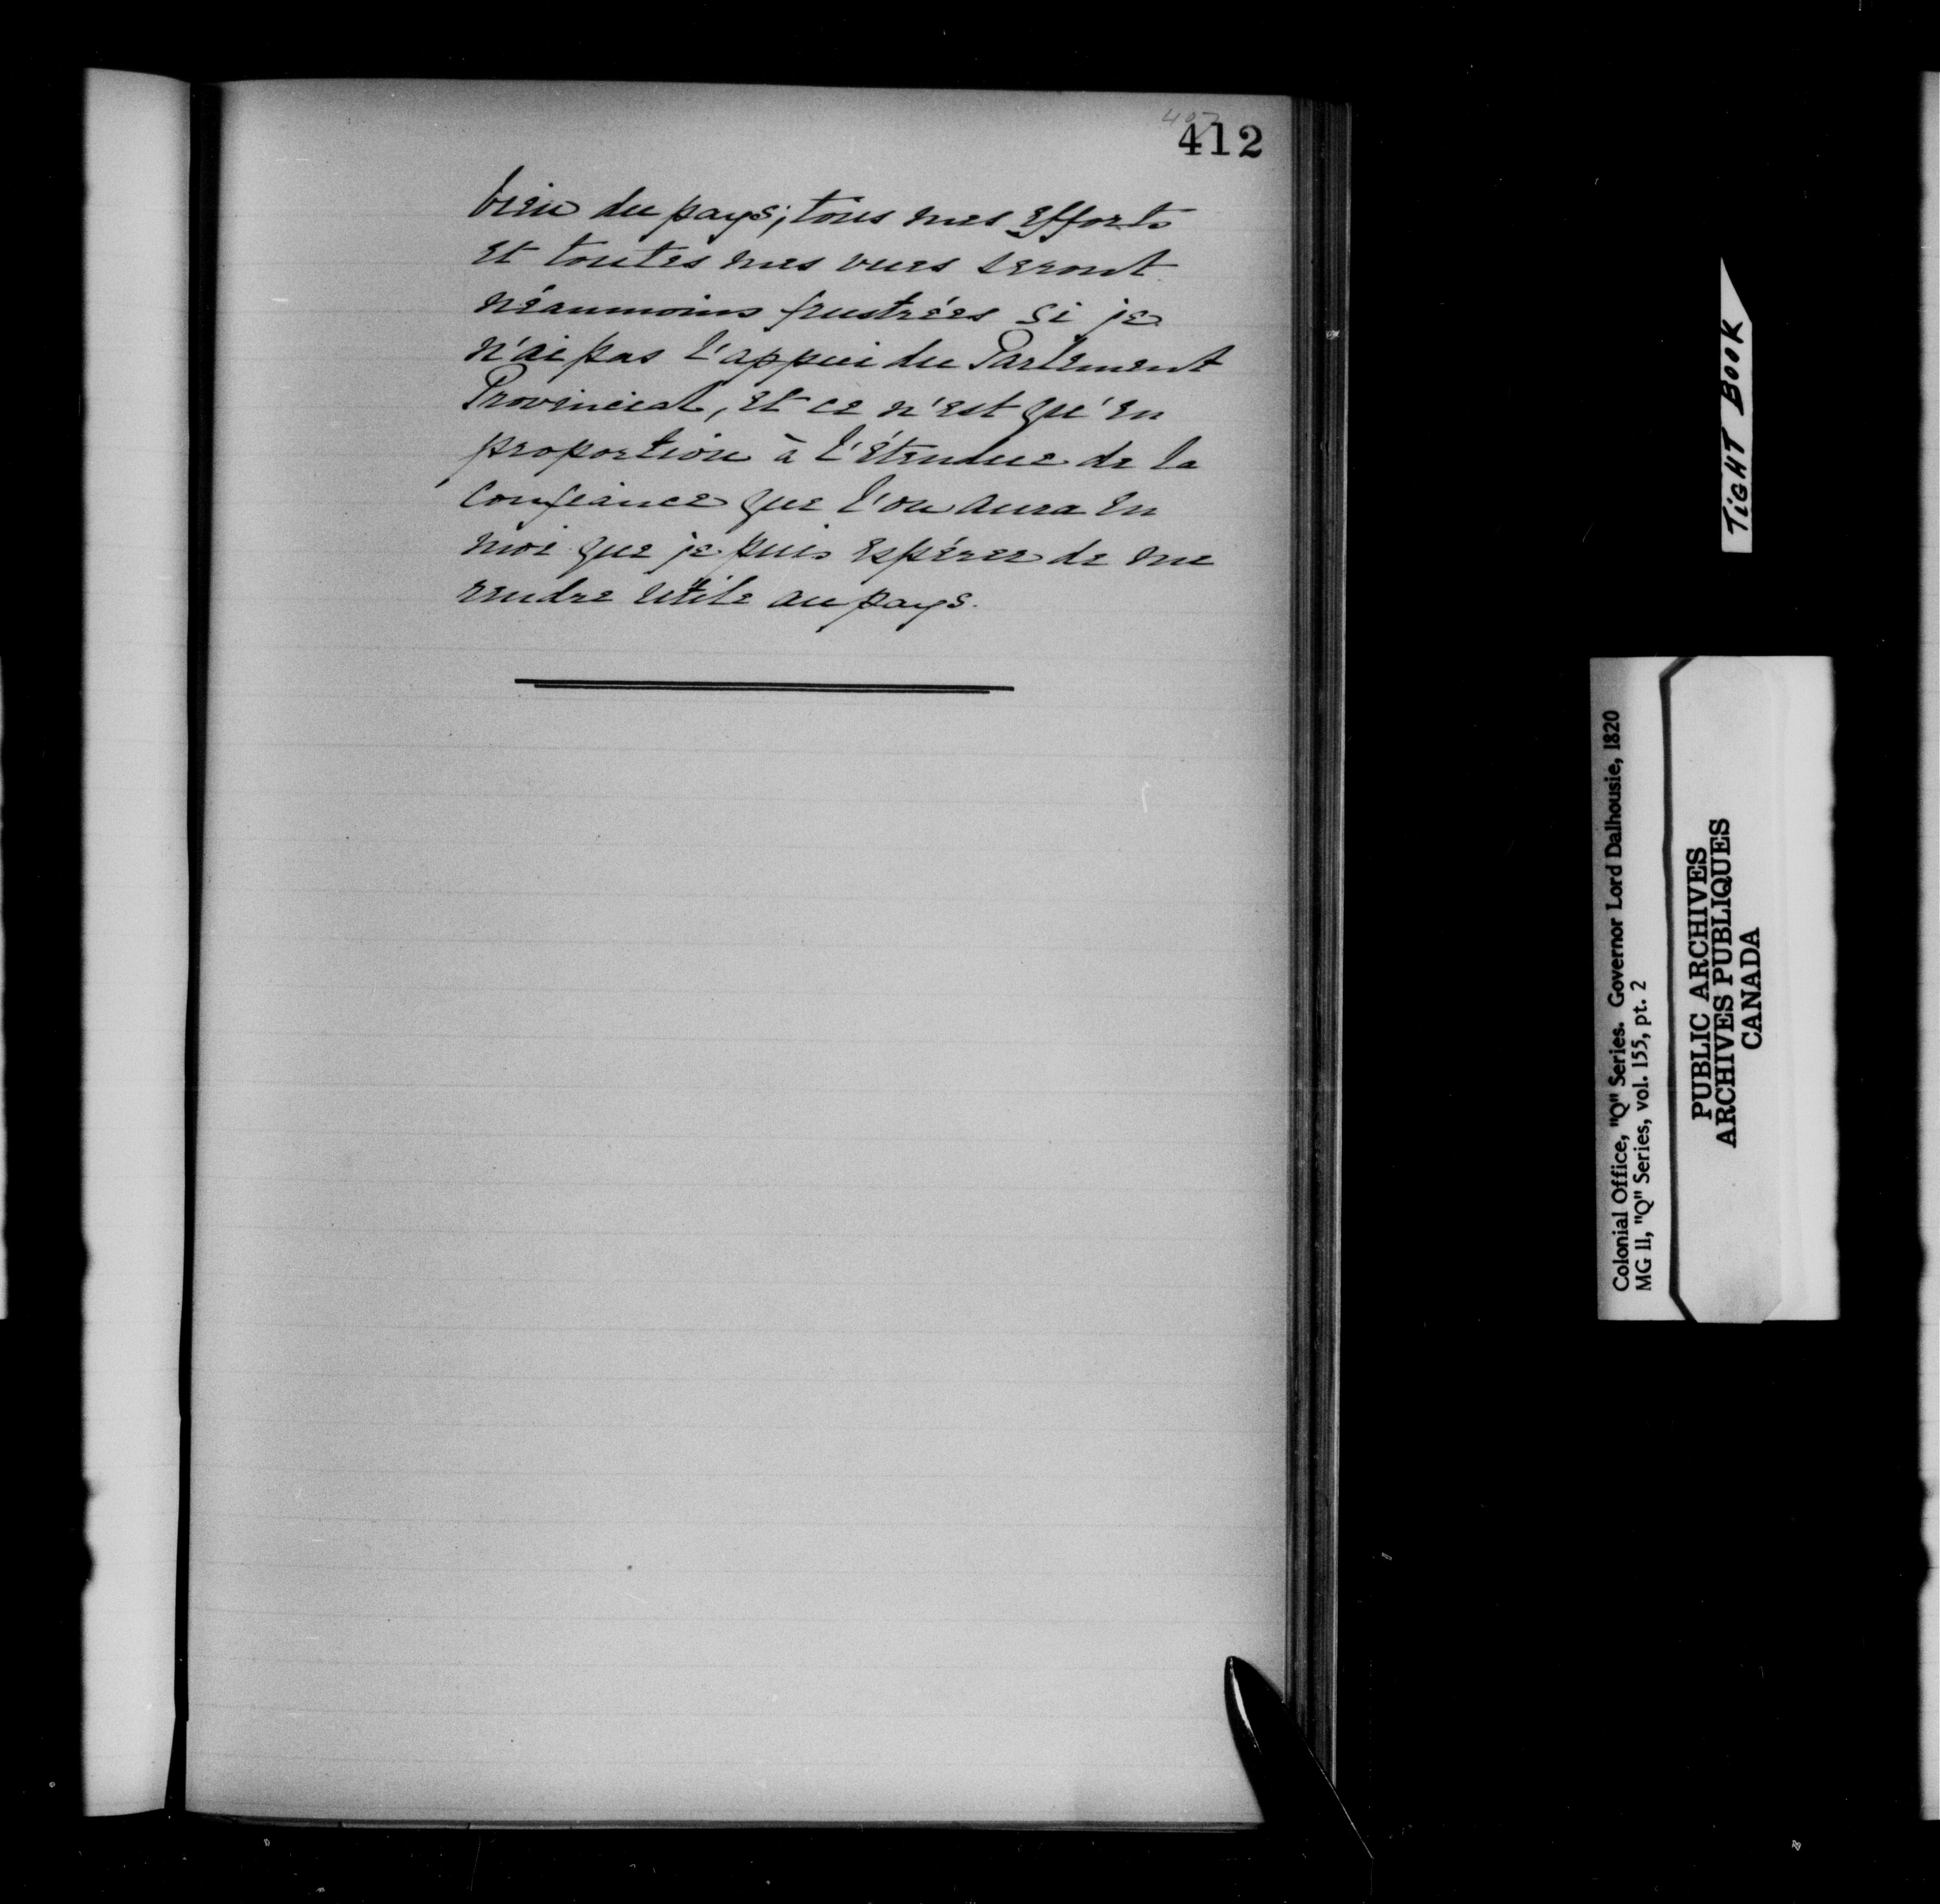 407
412
bien du pays; tous mes efforts
et toutes mes vues seront
néanmoins frustrées si je
n'ai pas l'appui du Parlement
Provincial, et ce n'est qu'en
proportion à l'étendue de la
confiance que l'on aura en
moi que je puis espérer de me
rendre utile au pays.
TIGHT BOOK
Colonial Office, "Q" Series. Governor Lord Dalhousie, 1820
MG 11, "Q" Series, vol. 155, pt. 2
PUBLIC ARCHIVES
ARCHIVES PUBLIQUES
CANADA